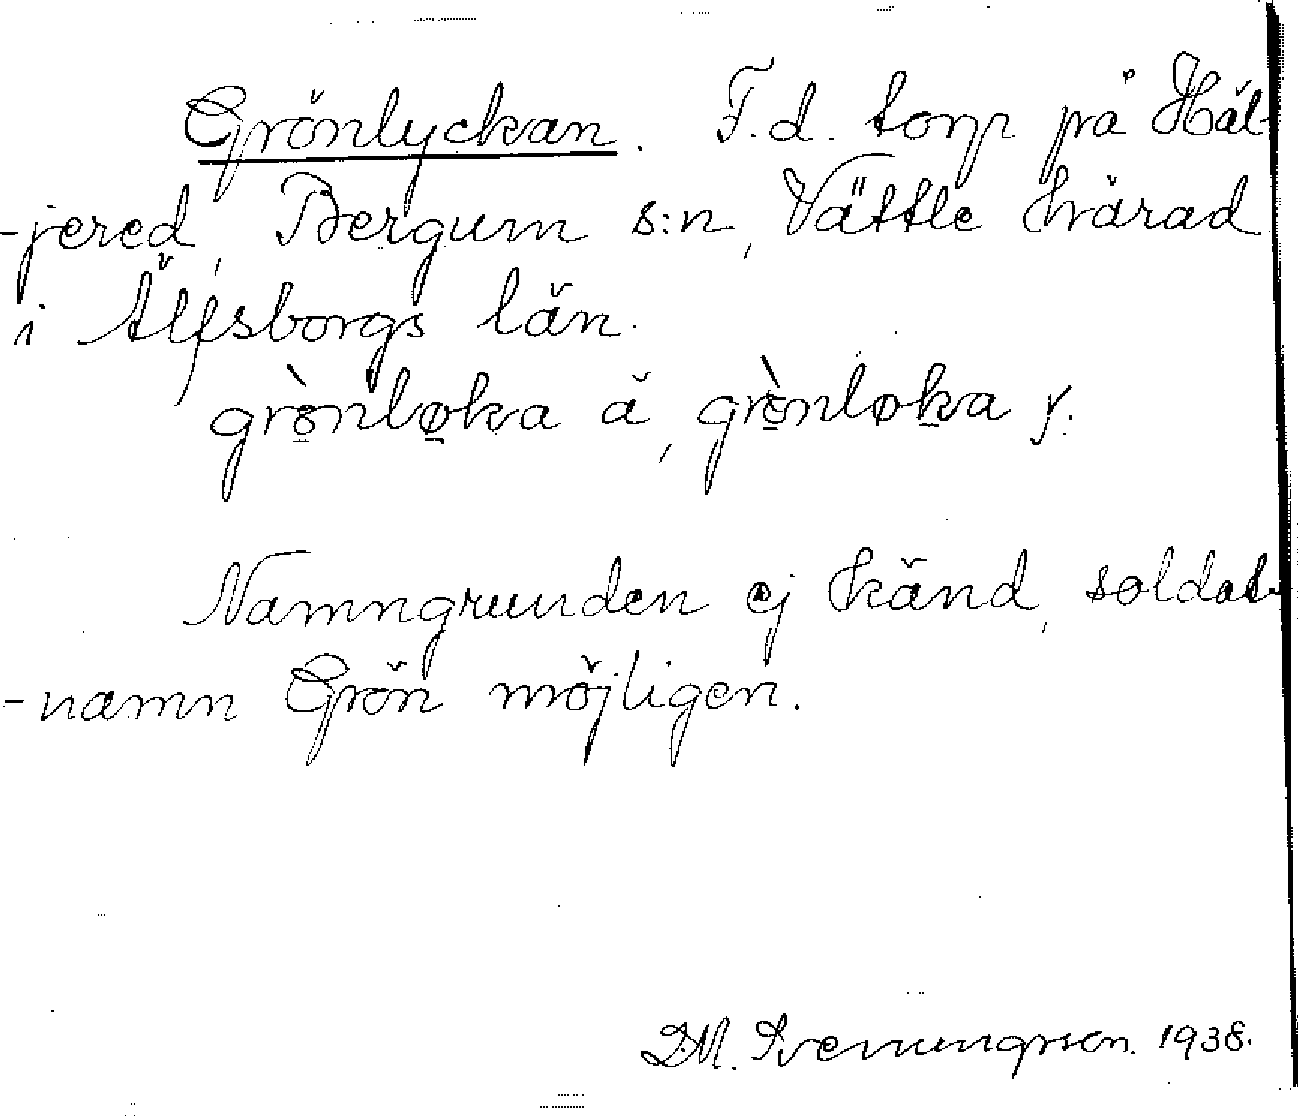 Grönlyckan. F.d. torp på Häl-
-jered, Bergum s:n, Vättle härad
i Älfsborgs län.
grò̱nlø̱ka ä, grò̱nløḵa y.
Namngrunden ej känd, soldat-
-namn Grön möjligen.
D.M. Svenungsson. 1938.